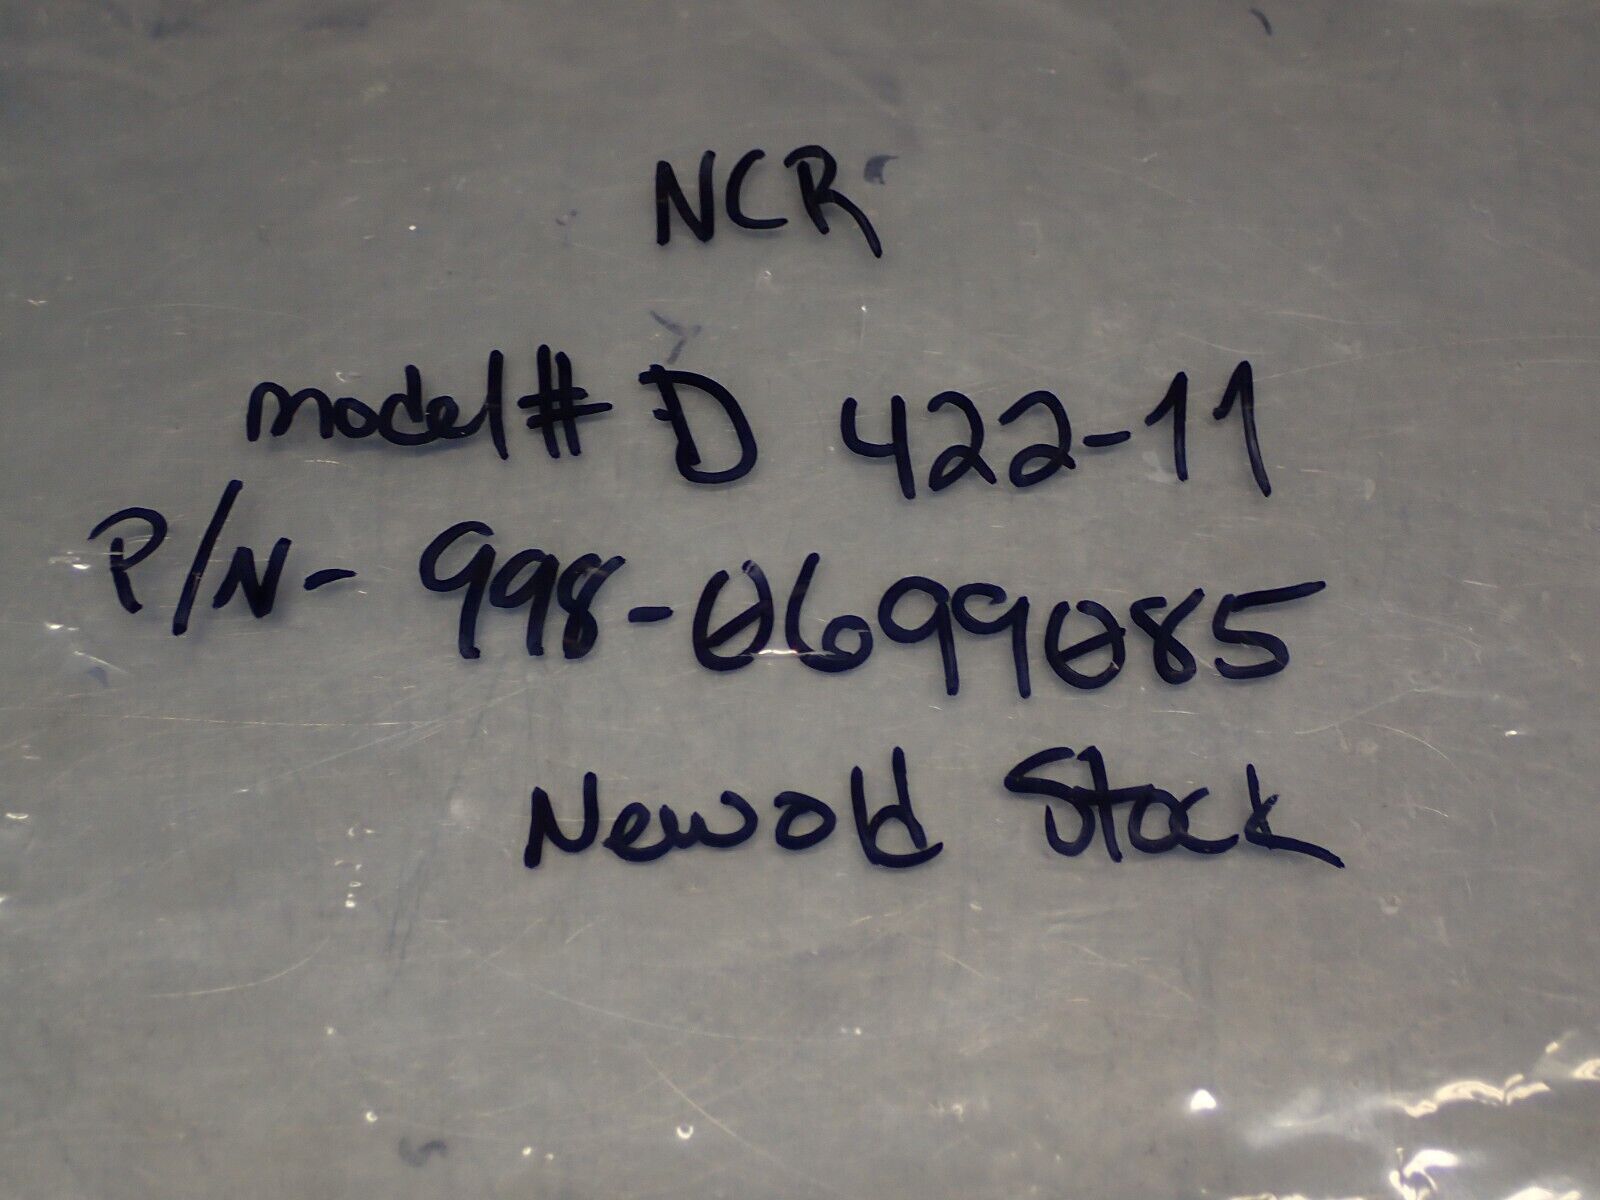 NCR
model# D 422-11
P/N- 998-0699085
New old Stock